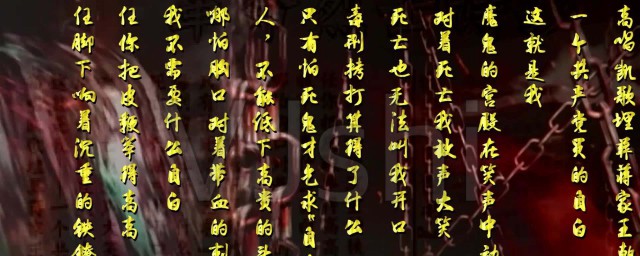 任脚下响着沉重的铁镣
任你把皮鞭举得高高
我不需要什么自白
哪怕胸口对着带血的刺
人，不能低下高贵的头
只有怕死鬼才乞求“自
毒刑拷打算得了什么
死亡也无法叫我开口
对着死亡我放声大笑
魔鬼的宫殿在笑声中动
这就是我
一个共产党员的自白
高唱凯歌埋葬蒋家王朝